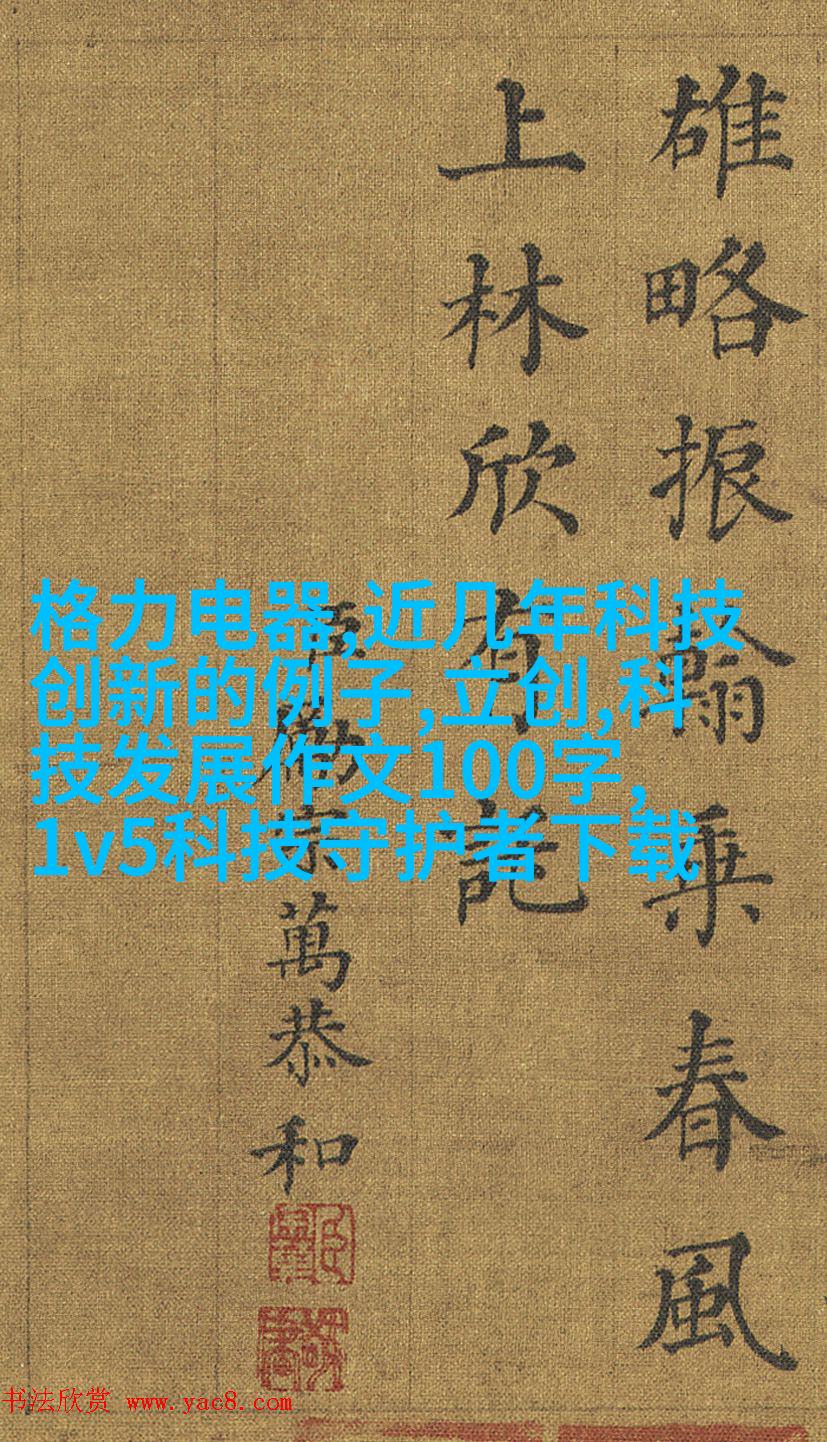 雄略振翰乘春風
上林欣有託
臣勵宗萬恭和
格力电器,近几年科技
创新的例子,立创,科
技发展作文100字,
1v5科技守护者下载
书法欣赏 www.yac8.com